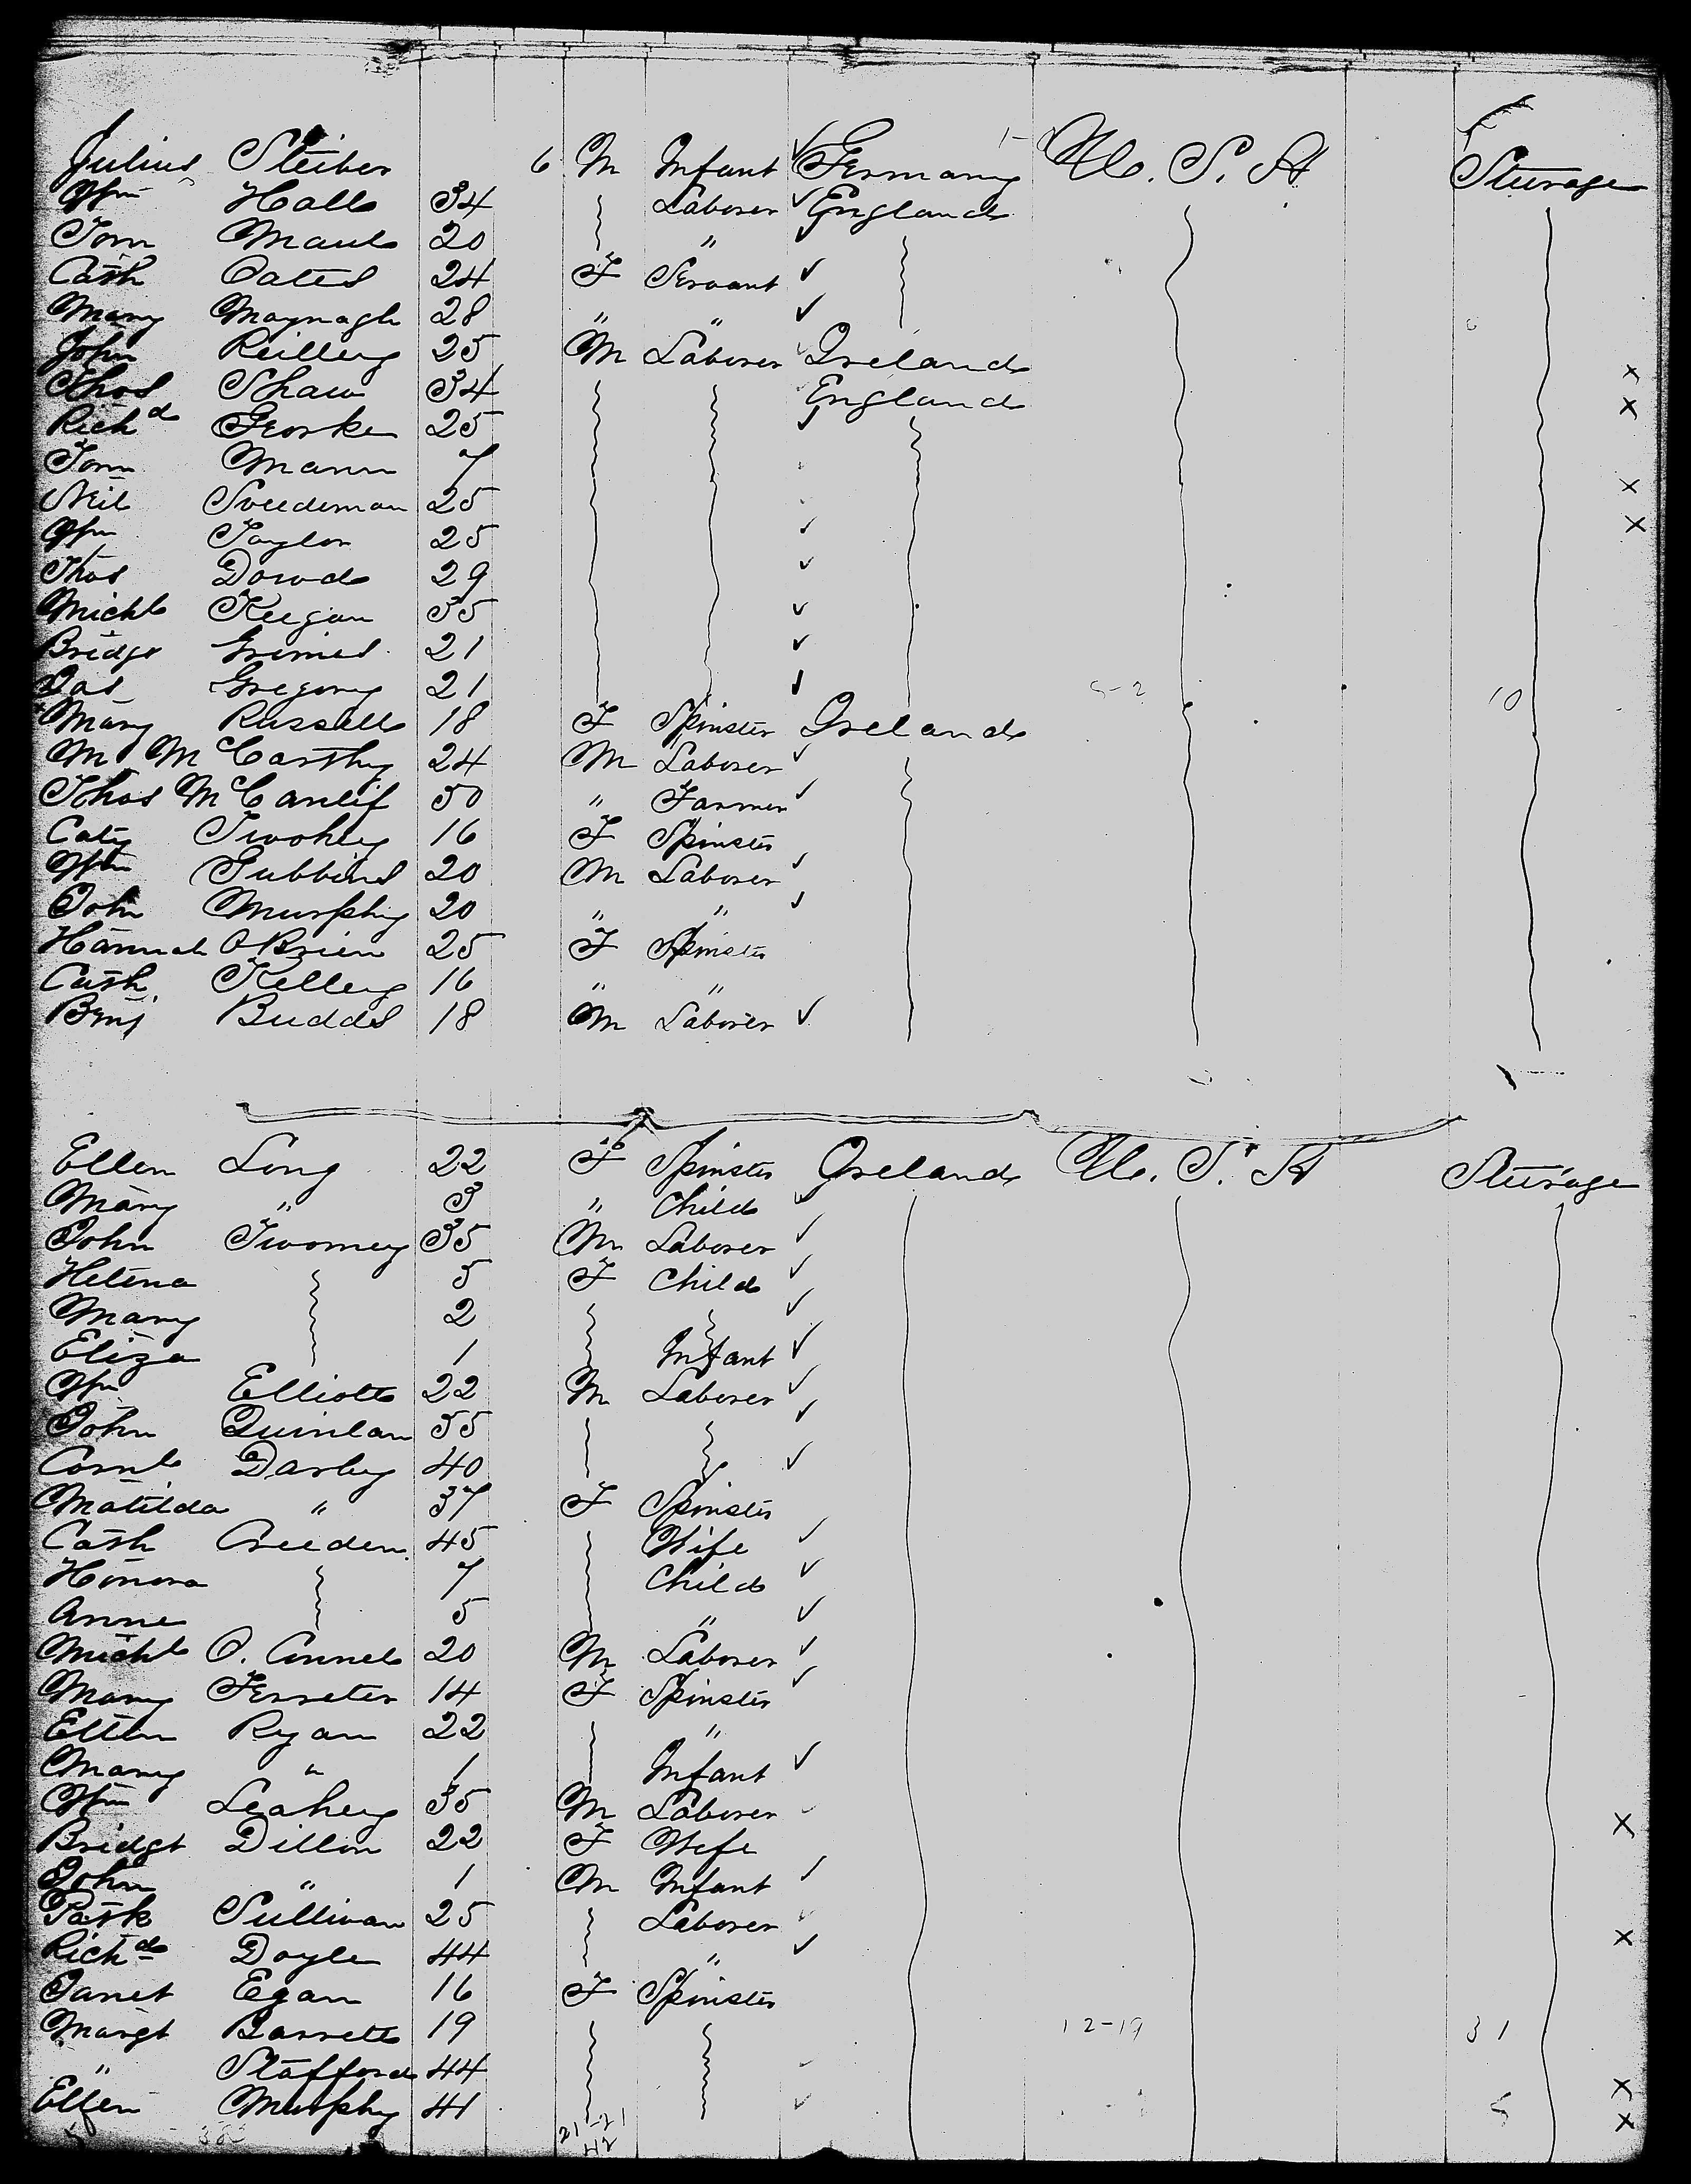 Julius Steiber 6 M Infant Germany U. S. A Steerage
Wm Hall 34 Laborer England
Tom Maul 20 "
Cath Oates 24 F Servant
Mary Maynagh 28 " "
John Reilley 25 M Laborer Ireland
Thos Shaw 34 England
Richd 25
Tom Mann 7
Neil Sweedeman 25
Wm Taylor 25
Thos Dowd 29
Michl Keegan 35
Bridgt Grimes 21
Jas Gregory 21
Mary Russell 18 F Spinster Ireland
M McCarthy 24 M Laborer
Thos McCanlif 50 " Farmer
Caty Twohey 16 F Spinster
Wm Gubbins 20 M Laborer
John Murphy 20 " "
Hannah OBrien 25 F Spinster
Cath Kelley 16 " "
Benj Budds 18 M Laborer
Ellen Long 22 F Spinster Ireland U. S. A Steerage
Mary " 3 " Child
John Twomey 35 M Laborer
Helena 5 F Child
Mary 2
Eliza 1 Infant
Wm Elliott 22 M Laborer
John Quinlan 55
Cornl Darby 40
Matilda " 37 F Spinster
Cath Creeden 45 Wife
Honora 7 Child
Anne 5 "
Michl O. Connel 20 M Laborer
Mary Ferreter 14 F Spinster
Ellen Ryan 22 "
Mary " 1 Infant
Wm Leahey 35 M Laborer
Bridgt Dillon 22 F Wife
John " 1 M Infant
Patk Sullivan 25 Laborer
Richd Doyle 44 "
Janet Egan 16 F Spinster
Margt Barrett 19 12-19 31
" Stafford 44
Ellen Murphy 41
21-21
42